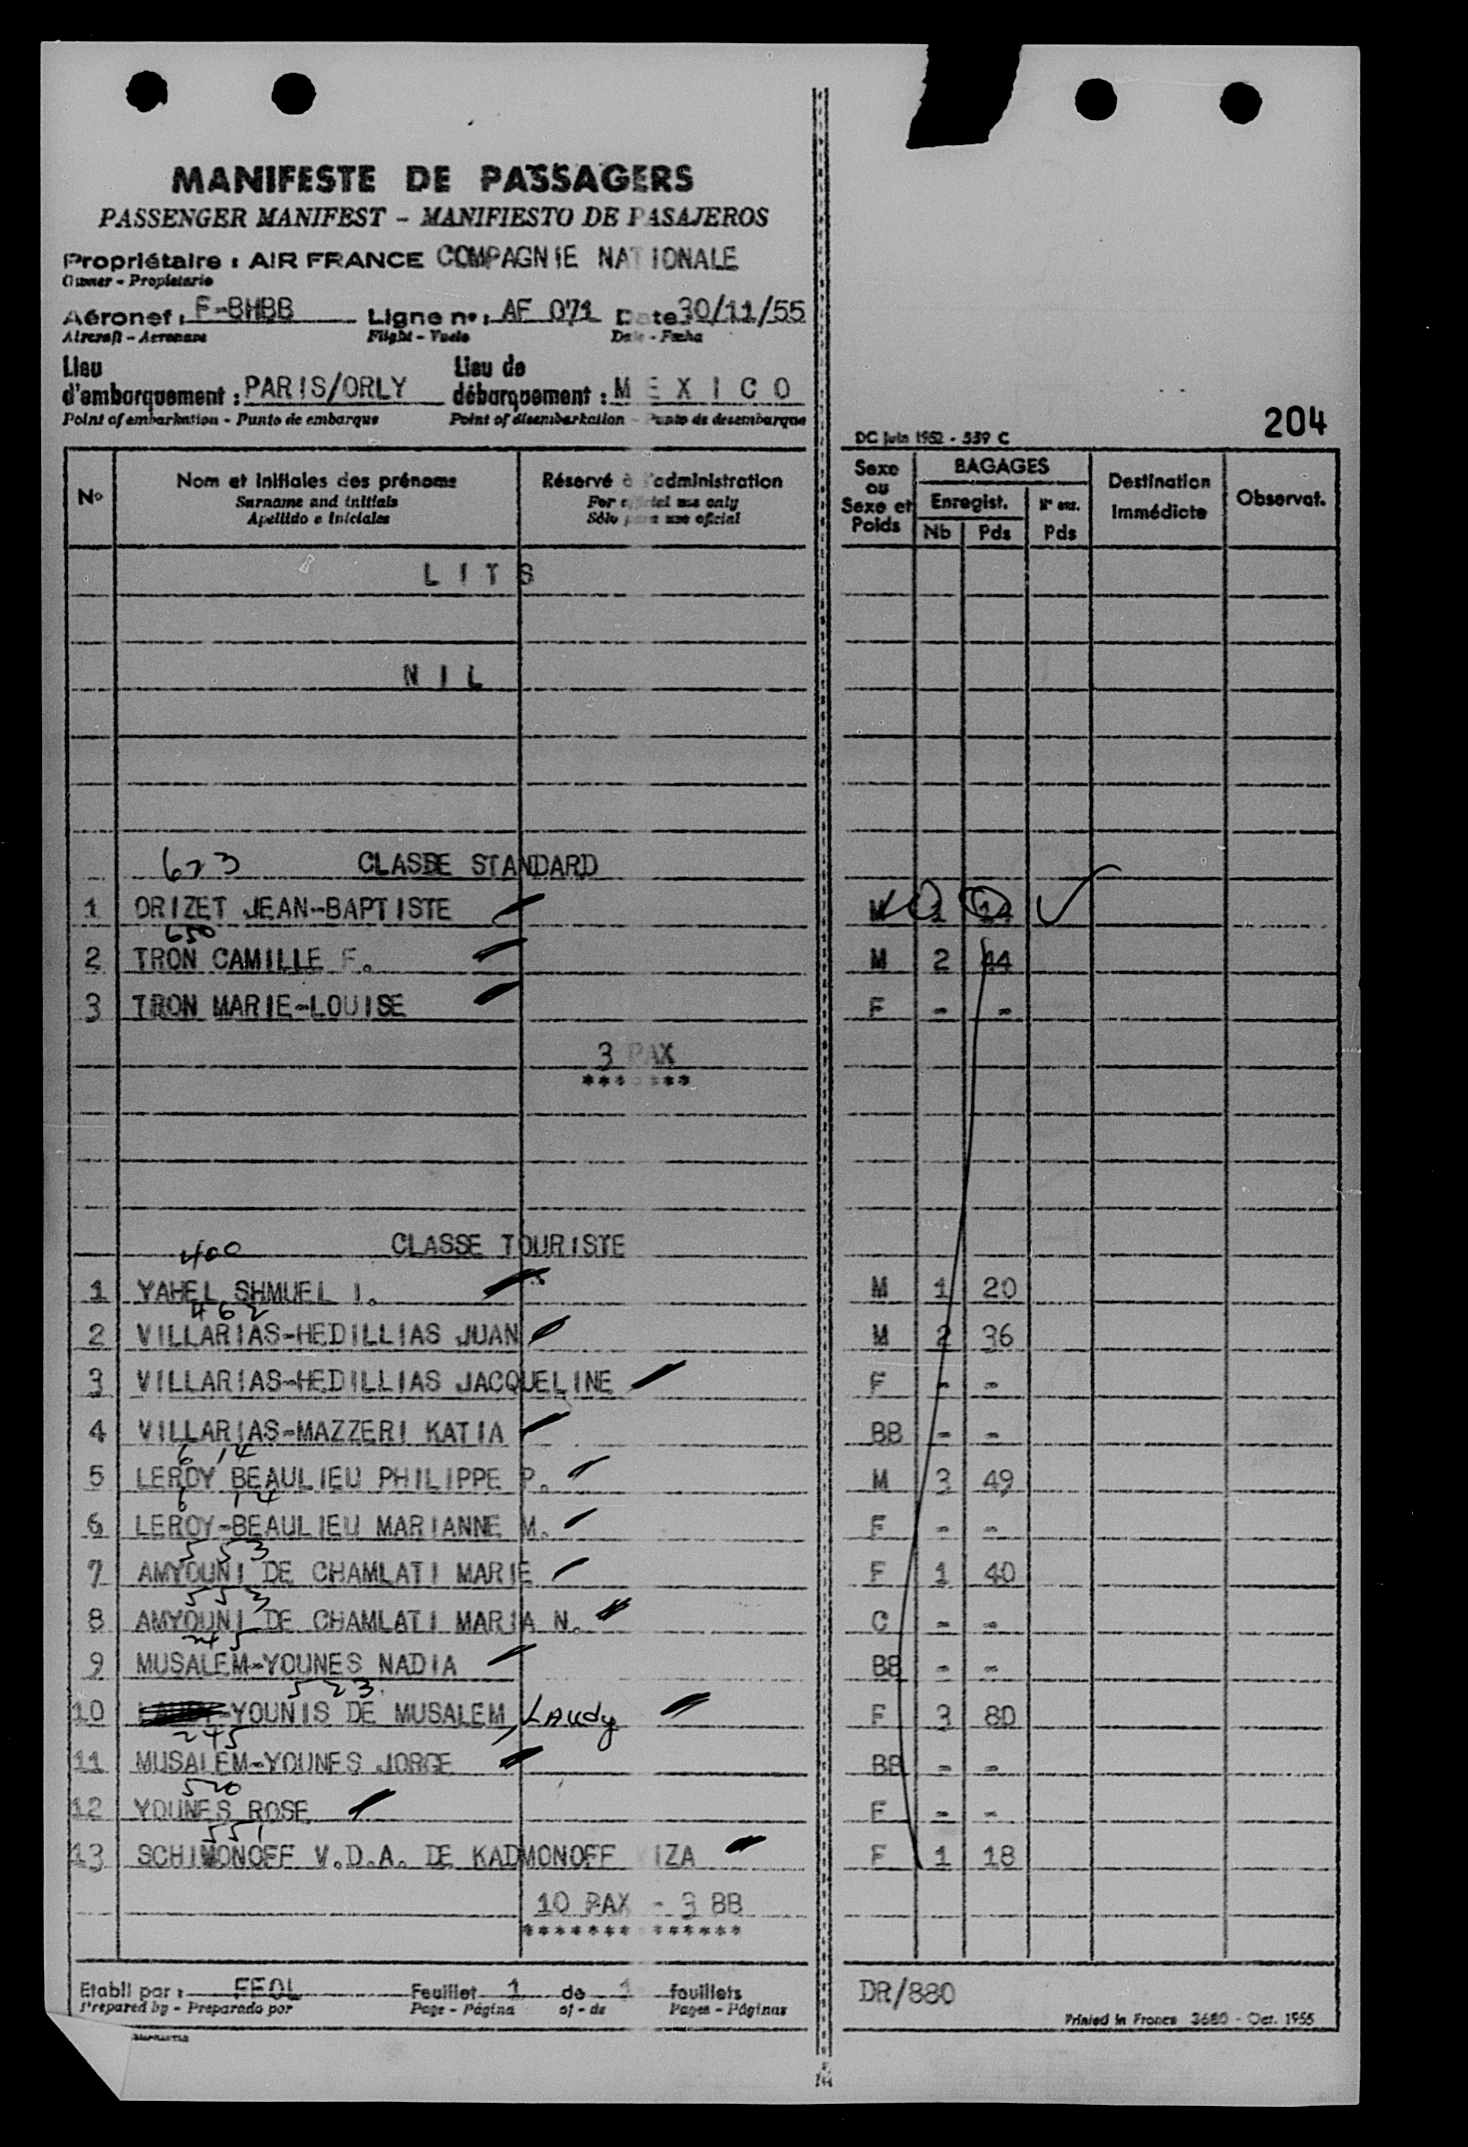 MANIFESTE DE PASSAGERS
PASSENGER MANIFEST - MANIFIESTO DE PASAJEROS
Propriétaire : AIR FRANCE COMPAGNIE NATIONALE
Owner - Propietario
Aéronef : F-BHBB Ligne nº : AF 071 Date 30/11/55
Aircraft - Aeronave Flight - Vuelo Date - Fecha
Lieu d'embarquement : PARIS/ORLY Lieu de débarquement : M E X I C O
Point of embarkation - Punto de embarque Point of disembarkation - Punto de desembarque
DC Juin 1952 - 539 C 204
Nº Nom et initiales des prénoms Réservé à l'administration Sexe ou Sexe et Poids BAGAGES Destination Immédiate Observat.
Surname and initials For official use only Enregist. Nº enr.
Apellido e iniciales Sólo para uso oficial Nb Pds Pds
L I T S
N I L
673 CLASSE STANDARD
1 ORIZET JEAN-BAPTISTE M 1 14
650
2 TRON CAMILLE F. M 2 44
3 TRON MARIE-LOUISE F - -
3 PAX
*******
400 CLASSE TOURISTE
1 YAHEL SHMUEL I. M 1 20
462
2 VILLARIAS-HEDILLIAS JUAN M 2 36
3 VILLARIAS-HEDILLIAS JACQUELINE F - -
4 VILLARIAS-MAZZERI KATIA BB - -
6 14
5 LEROY BEAULIEU PHILIPPE P. M 3 49
6 14
6 LEROY-BEAULIEU MARIANNE M. F - -
553
7 AMYOUNI DE CHAMLATI MARIE F 1 40
553
8 AMYOUNI DE CHAMLATI MARIA N. C - -
245
9 MUSALEM-YOUNES NADIA BB - -
523
10 LAUDY-YOUNIS DE MUSALEM, Laudy F 3 80
245
11 MUSALEM-YOUNES JORGE BB - -
520
12 YOUNES ROSE F - -
551
13 SCHIMONOFF V.D.A. DE KADMONOFF IZA F 1 18
10 PAX - 3 BB
******* ******
Etabli par : FEOL Feuillet 1 de 1 feuillets DR/880
Prepared by - Preparado por Page - Página of - de Pages - Páginas
Printed in France 3680 - Oct. 1955